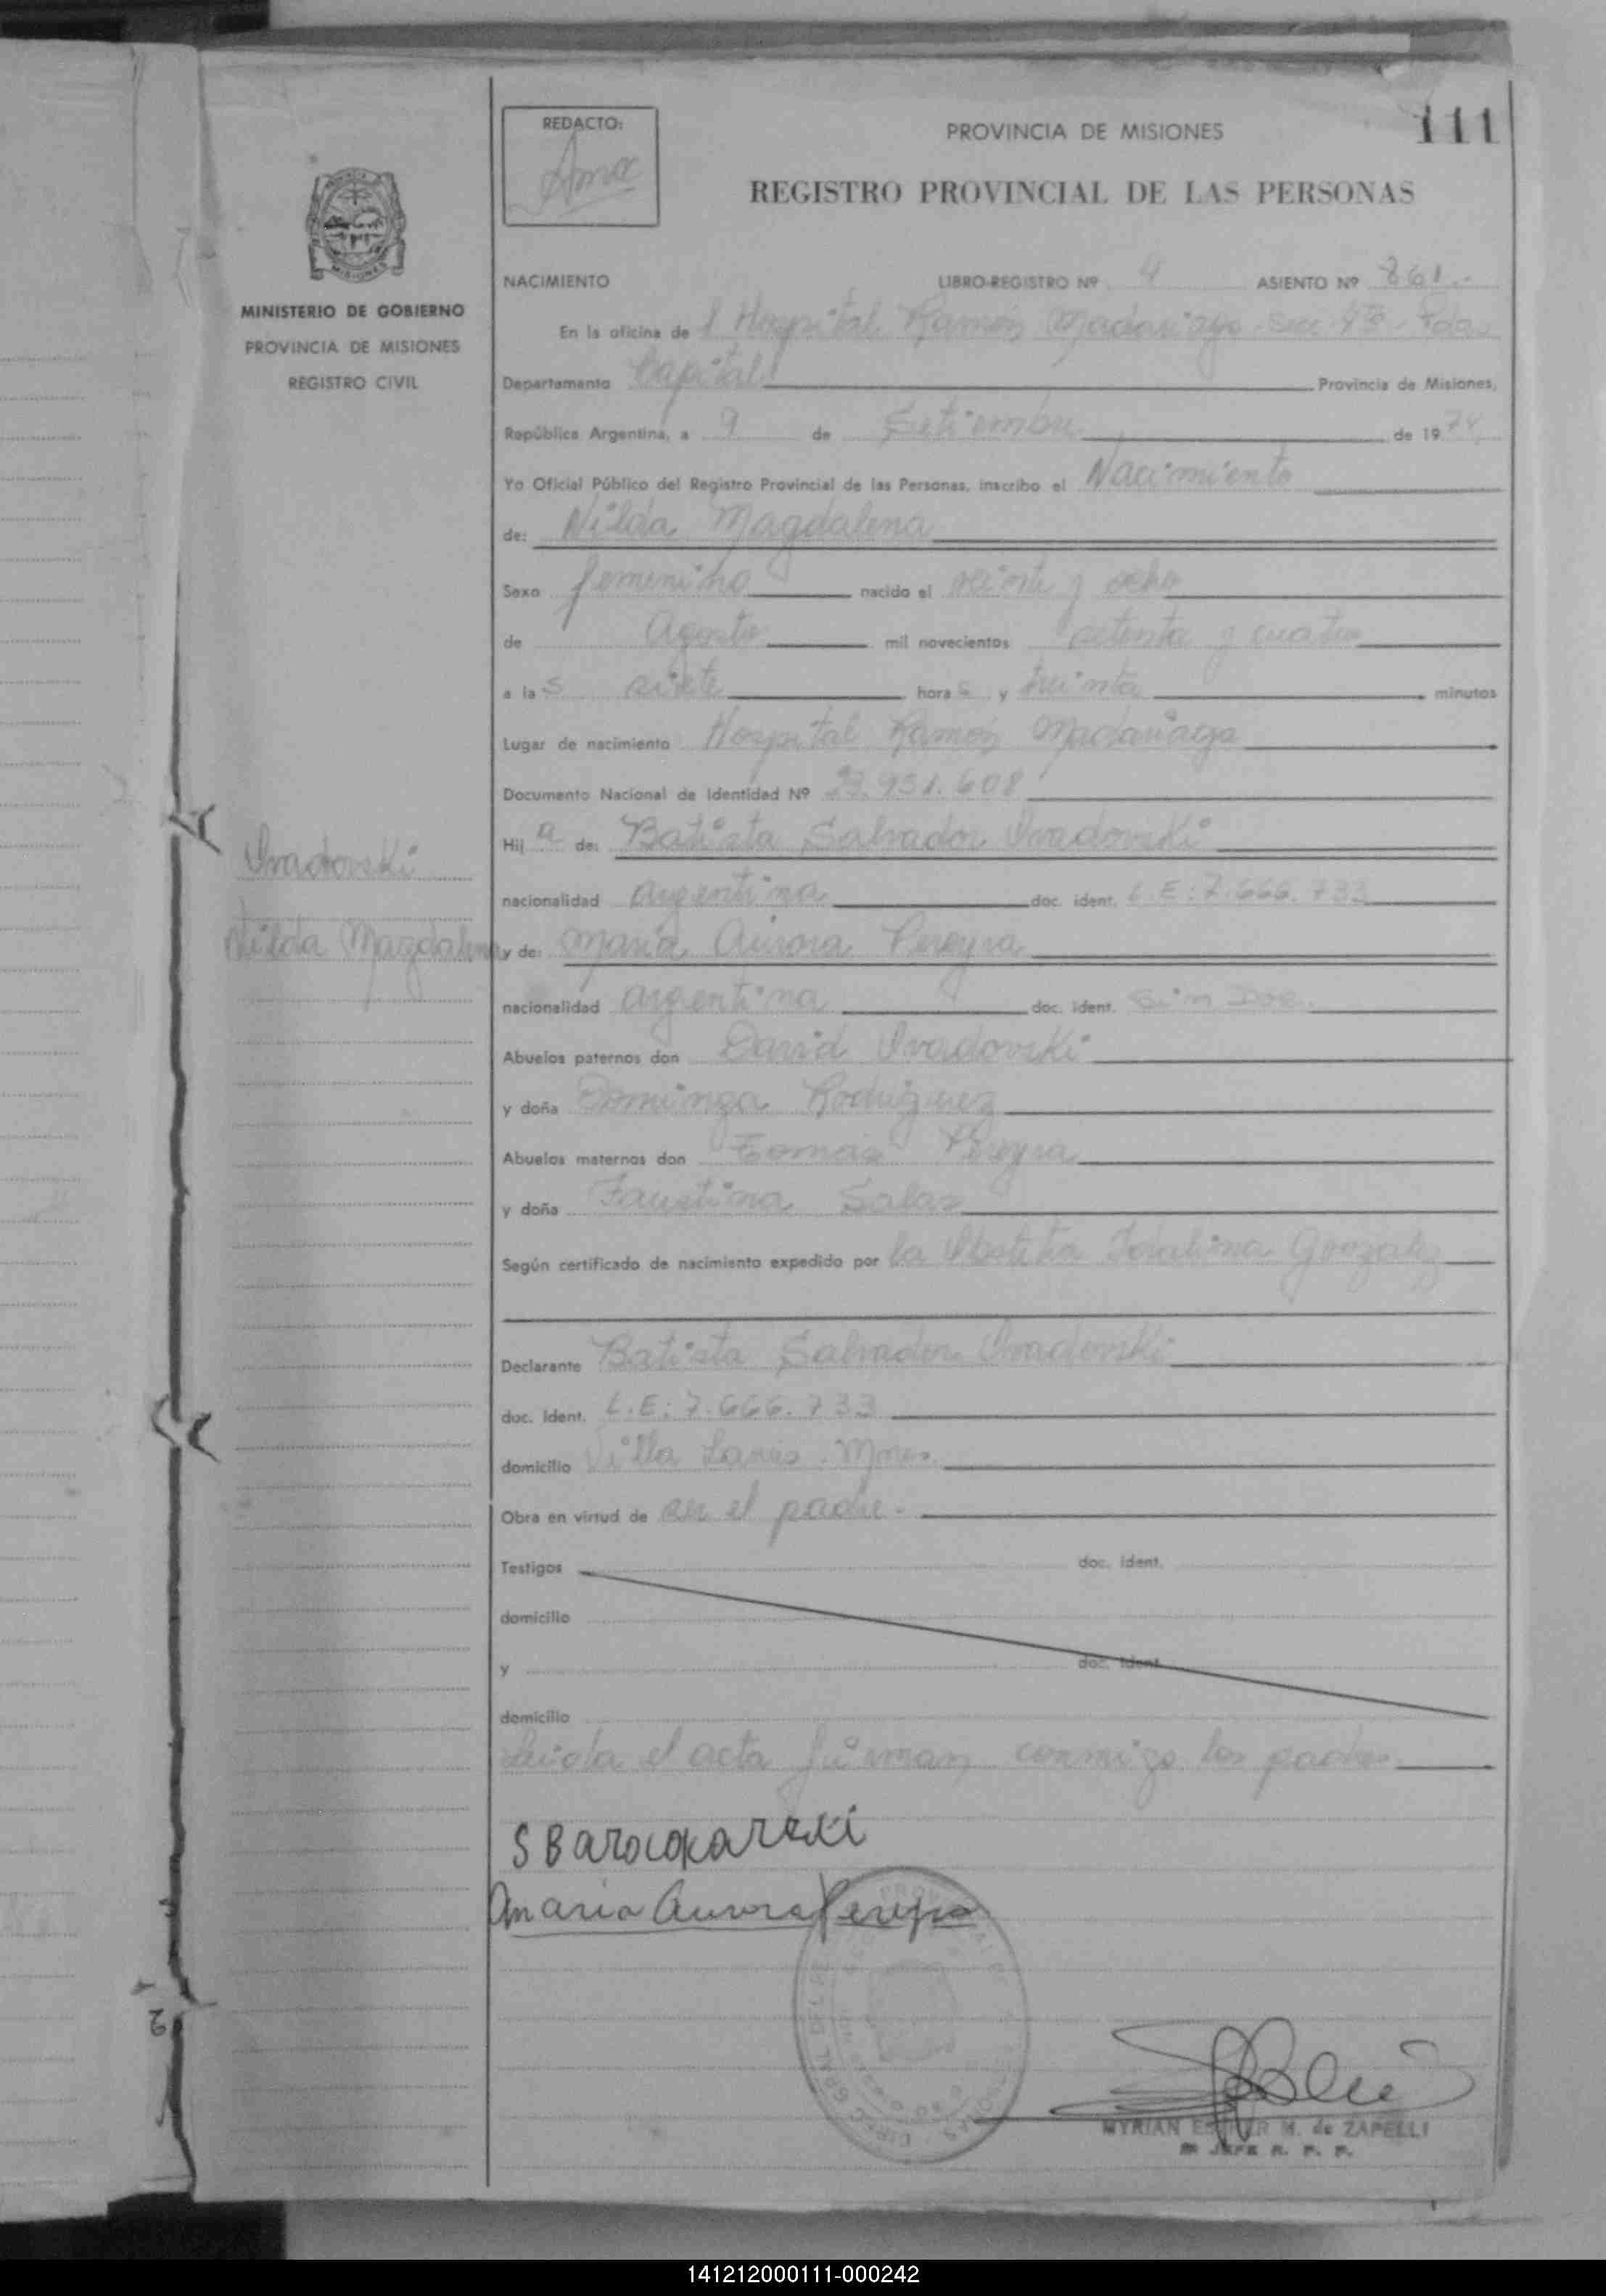 REDACTO:
PROVINCIA DE MISIONES
111
REGISTRO PROVINCIAL DE LAS PERSONAS
MISIONES
MINISTERIO DE GOBIERNO
PROVINCIA DE MISIONES
REGISTRO CIVIL
NACIMIENTO LIBRO-REGISTRO Nº 4 ASIENTO Nº 861.-
En la oficina de l Hospital Ramón Madariaga - Secc 4ta - Pdas
Departamento Capital Provincia de Misiones,
República Argentina, a 9 de Setiembre de 1974
Yo Oficial Público del Registro Provincial de las Personas, inscribo el Nacimiento
de: Nilda Magdalena
Sexo femenino nacido el veinte y ocho
de Agosto mil novecientos setenta y cuatro
a las siete horas y treinta minutos
Lugar de nacimiento Hospital Ramón Madariaga
Documento Nacional de Identidad Nº 23.951.608
Hija de: Batista Salvador Dradovski
nacionalidad argentina doc. ident. L.E: 7.666.733
y de: María Aurora Pereyra
nacionalidad argentina doc. ident. Sin Doc.
Abuelos paternos don David Dradovski
y doña Dominga Rodriguez
Abuelos maternos don Tomás Pereyra
y doña Faustina Salas
Según certificado de nacimiento expedido por la Obstetra Gonzalez
Declarante Batista Salvador Dradovski
doc. Ident. L.E: 7.666.733
domicilio Villa Lanús. Mnes.
Obra en virtud de ser el padre.-
Testigos doc. ident.
domicilio
y doc. ident.
domicilio
Leída el acta firman conmigo los padres.
Dradovski
Nilda Magdalena
Maria Aurora Pereyra
MYRIAN ESTHER M. de ZAPELLI
JEFE R. P. P.
141212000111-000242